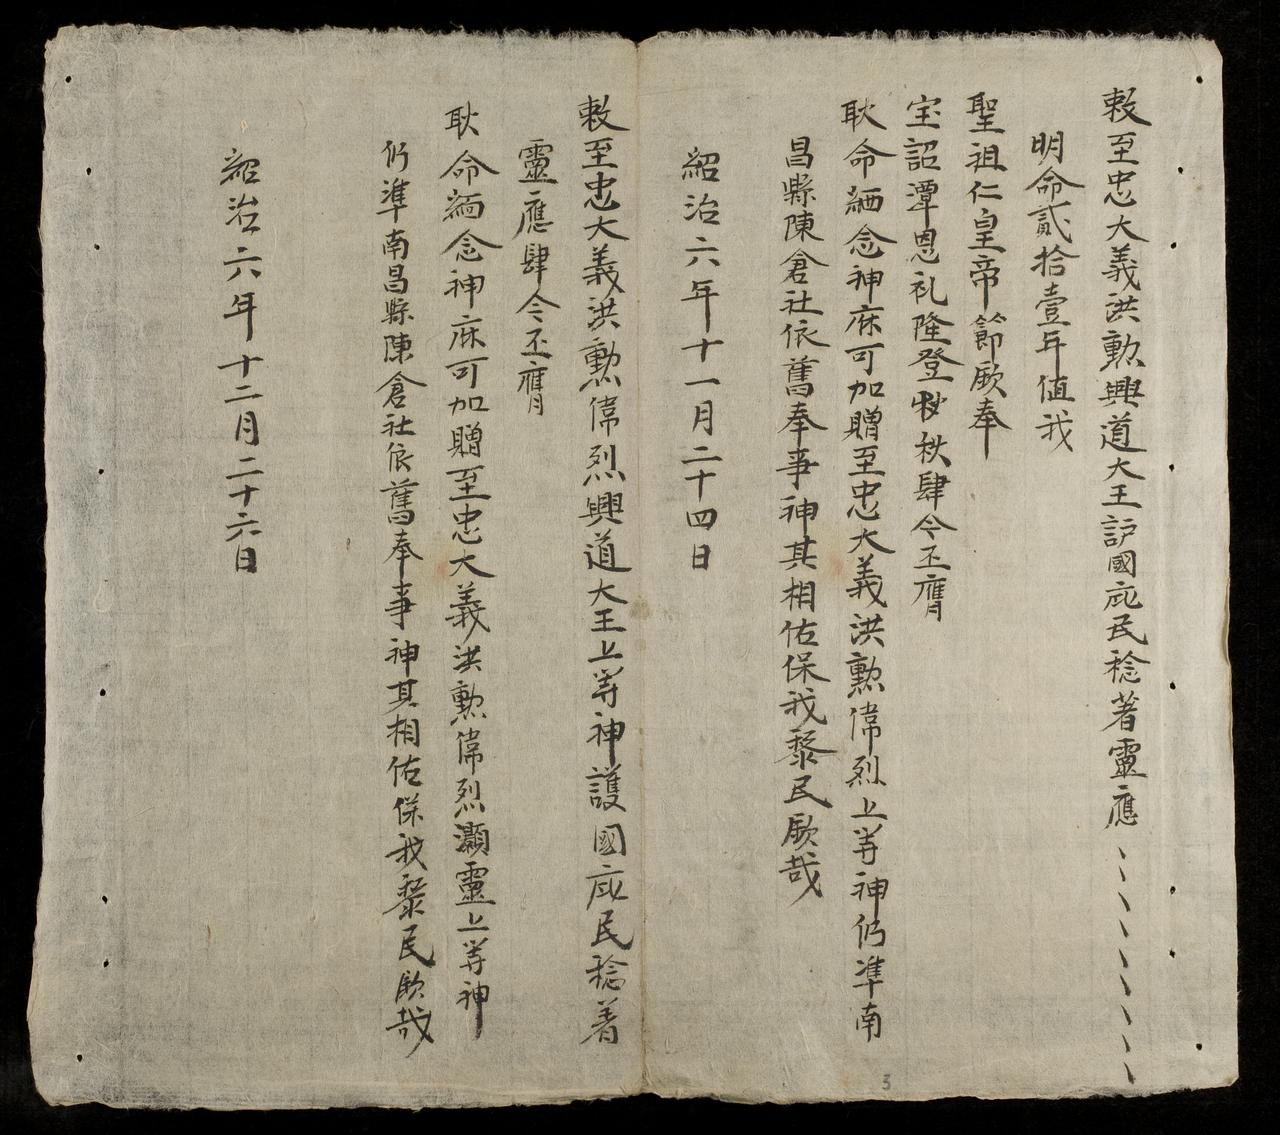 敕至忠大義洪勳興道大王護國庇民稔著靈應
明命貳拾壹年值我
聖祖仁皇帝節厥奉
宝詔潭恩礼隆登秩肆今丕膺
耿命緬念神庥可加贈至忠大義洪勳偉烈上等神仍準南
昌縣陳倉社依舊奉事神其相佑保我黎民厥哉
紹治六年十一月二十四日
敕至忠大義洪勳偉烈興道大王上等神護國庇民稔著
靈應肆今丕膺
耿命緬念神庥可加贈至忠大義洪勳偉烈灝靈上等神
仍準南昌縣陳倉社依舊奉事神其相佑保我黎民厥哉
紹治六年十二月二十六日
3